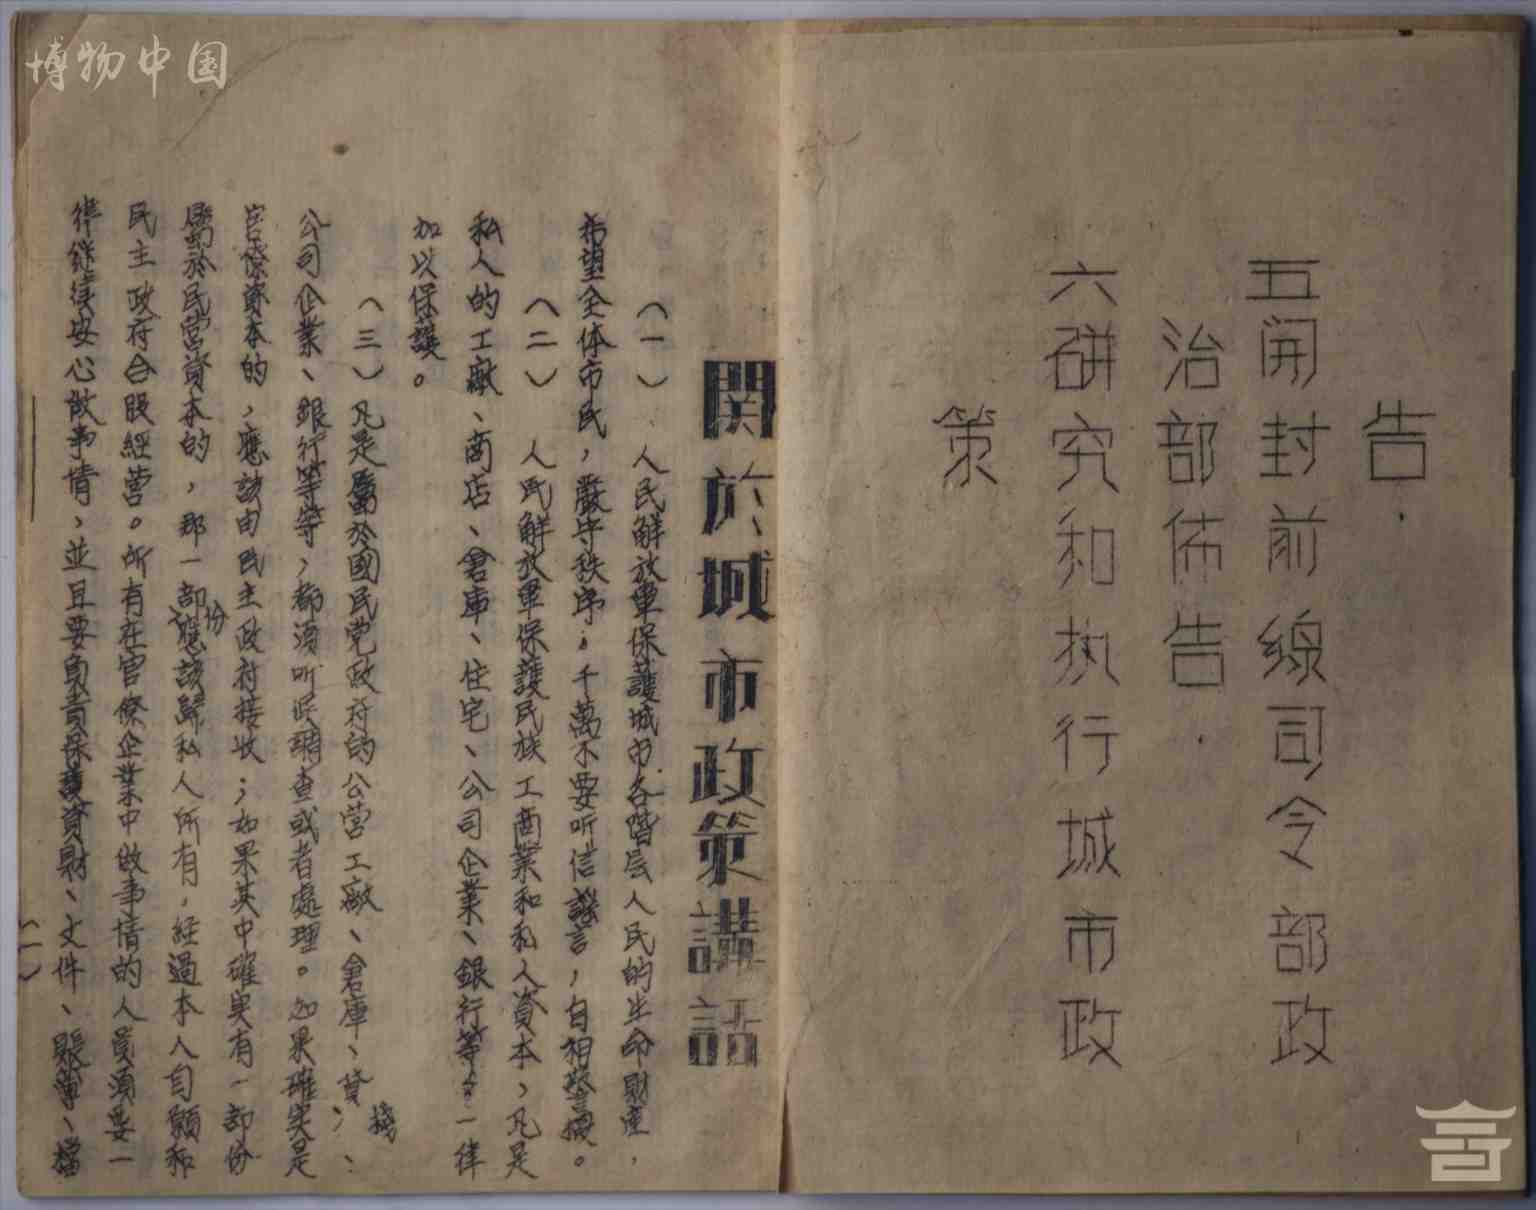 博物中国
告．
五開封前線司令部政
治部佈告．
六研究和执行城市政
策
関於城市政策講話
（一）、人民解放軍保護城市各階层人民的生命財產，
希望全体市民，嚴守秩序；千萬不要听信謠言，自相驚擾。
（二）人民解放軍保護民族工商業和私人資本，凡是
私人的工廠、商店、倉庫、住宅、公司企業、銀行等々一律
加以保護。
（三）凡是屬於國民党政府的公营工廠、倉庫、貨棧、
公司企業、銀行等等，都須听候調查或者處理。如果確实是
官僚資本的，應該由民主政府接收；如果其中確实有一部份
屬於民营資本的，那一部份應該歸私人所有，経過本人自願和
民主政府合股經营。所有在官僚企業中做事情的人員須要一
律继续安心做事情，並且要負責保護資財、文件、賬簿、檔
（一）